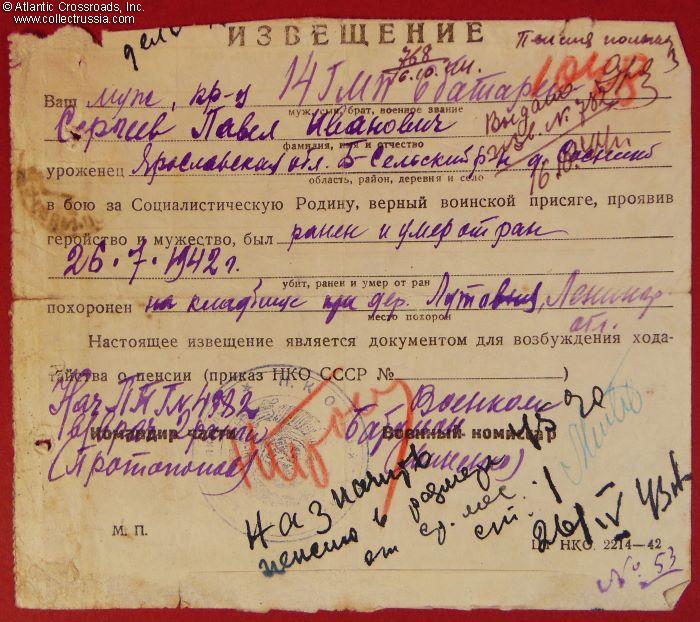 © Atlantic Crossroads, Inc.
www.collectrussia.com
дело
ИЗВЕЩЕНИЕ
Пенсия
768
16.10.44г.
Ваш муж, кр-ц 14 ГМП батареи
муж, сын, брат, военное звание
Выдано
Сергеев Павел Иванович
фамилия, имя и отчество
16.10.44г.
уроженец Ярославская обл. Б-Сельский р-н д.
область, район, деревня и село
в бою за Социалистическую Родину, верный воинской присяге, проявив
геройство и мужество, был ранен и умер от ран
26.7.1942 г.
убит, ранен и умер от ран
похоронен на кладбище при дер. Ленингр.
место похорон
обл.
Настоящее извещение является документом для возбуждения хода-
тайства о пенсии (приказ НКО СССР № )
Нач ППГ 4982
Военком
Командир части
Военный комиссар
(Протопопов)
Назначить
пенсию в размере
от ср. мес.
ст. 1
26/IV 43г
М. П.
ЦТ НКО. 2214—42
№ 53